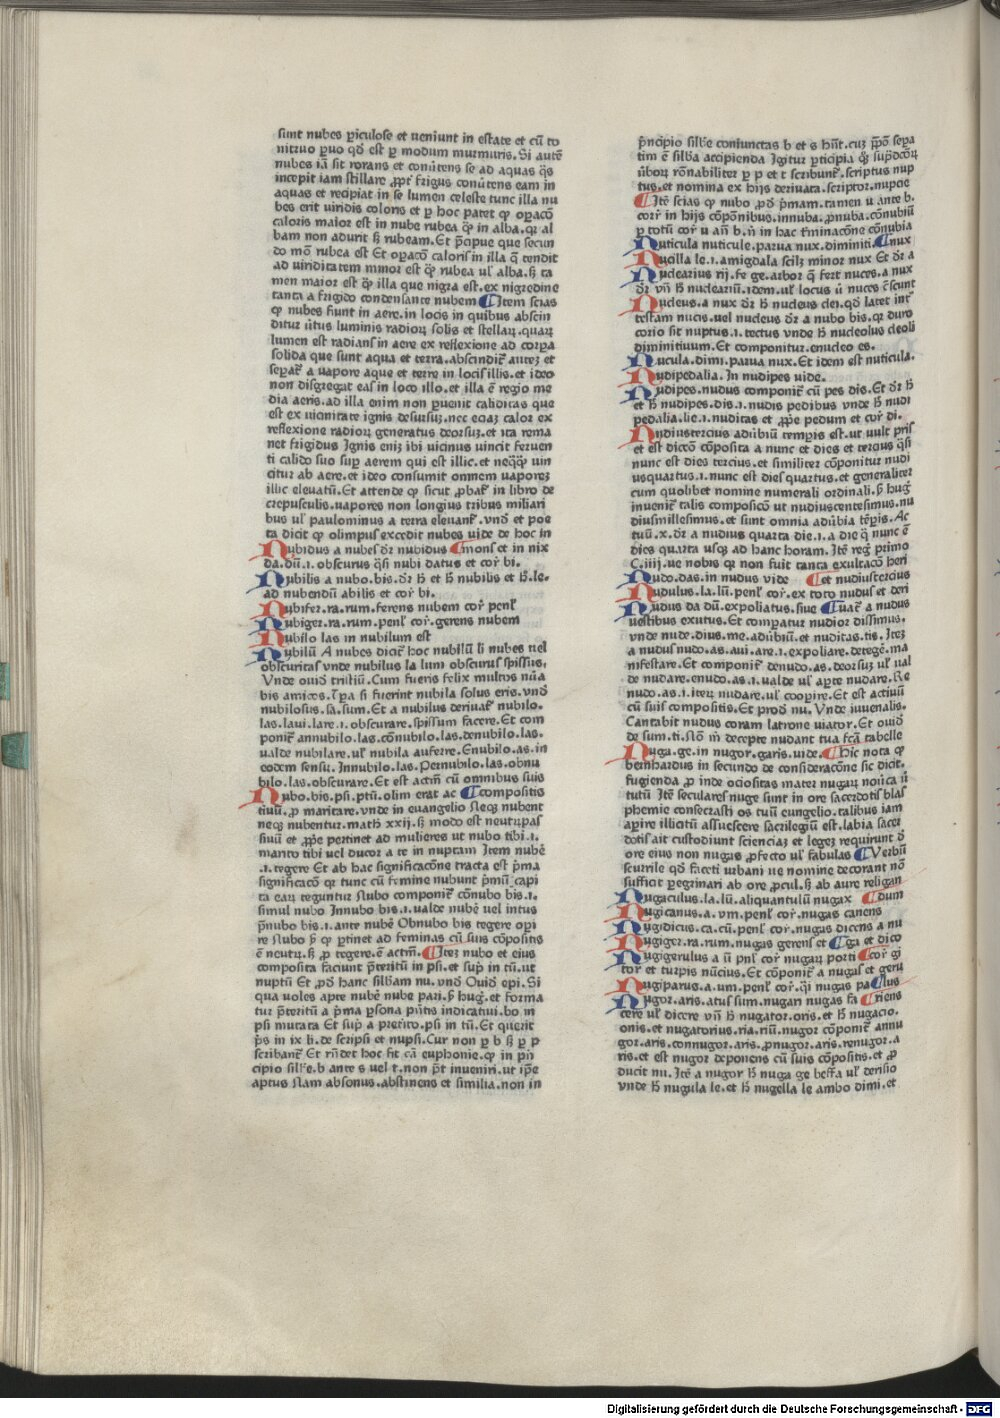 sunt nubes ꝑiculose et ueniunt in estate et cū to
nitruo ꝑuo qđ est ꝑ modum murmuris. Si autē
nubes iā sit rorans et conūtens se ad aquas q̄s
incepit iam stillare ꝓpt̕ frigus conūtens eam in
aquas et recipiat in se lumen celeste tunc illa nu
bes erit uiridis coloris et ꝑ hoc patet ꝙ opacō
caloris maior est in nube rubea ꝙ̄ in alba. qr al
bam non adurit ꝫ rubeam. Et p̄cipue que secun
do mō rubea est Et opacō caloris in illa q̄ tendit
ad uiriditatem minor est ꝙ̄ rubea ul̕ alba. ꝫ ta
men maior est ꝙ̄ illa que nigra est. ex nigredine
tanta a frigido condensante nubem Item scias
ꝙ nubes fiunt in aere. in locis in quibus abscin
ditur ūtus luminis radioꝝ solis et stellaꝝ. quaꝝ
lumen est radians in aere ex reflexione ad corꝑa
solida que sunt aqua et terra. abscindit̕ autez et
seꝑat̕ a uapore aque et terre in locis illis. et ideo
non disgregat eas in loco illo. et illa ē regio me
dia aeris. ad illa enim non ꝑuenit caliditas que
est ex uicinitate ignis desursuz. nec eciaz calor ex
reflexione radioꝝ generatus deorsuz. et ita rema
net frigidus Ignis eniz ibi uicinus uincit feruen
ti calido suo suꝑ aerem qui est illic. et neqꝙ̄ uin
citur ab aere. et ideo consumit omnem uaporez
illic eleuatū. Et attende ꝙ sicut ꝓbat̕ in libro de
crepusculis. uapores non longius tribus miliari
bus ul̕ paulominus a terra eleuant̕. vnđ et poe
ta dicit ꝙ olimpus excedit nubes uide de hoc in
Nubidus a nubes dr̄ nubidus mons et in nix
da. dū. i. obscurus q̄si nubi datus et cor̕ bi.
Nubilis a nubo. bis. dr̄ ħ et ħ nubilis et ħ. le.
ad nubendū abilis et cor̕ bi.
Nubifer. ra. rum. ferens nubem cor̕ penl̕
Nubiger. ra. rum. penl̕ cor̕. gerens nubem
Nubilo las in nubilum est
Nubilū A nubes dicit̕ hoc nubilū li nubes uel
obscuritas vnde nubilus la lum obscurus spissus.
Vnde ouiđ tristiū. Cum fueris felix multos nūa
bis amicos. Tꝑa si fuerint nubila solus eris. vnđ
nubilosus. sa. sum. Et a nubilus deriuat̕ nubilo.
las. laui. lare. i. obscurare. spissum facere. Et com
ponit̕ annubilo. las. cōnubilo. las. denubilo. las.
ualde nubilare. ul̕ nubila auferre. Enubilo. as. in
eodem sensu. Innubilo. las. Pernubilo. las. obnu
bilo. las. obscurare. Et est actiū cū omnibus suis
Nubo. bis. psi. ptū. olim erat ac compositis
tiuū. ꝓ maritare. vnde in euangelio Neqꝫ nubent
neqꝫ nubentur. math̄ xxij. ꝫ modo est neutrꝭpas
siuū et ꝓp̄e pertinet ad mulieres ut nubo tibi. i.
marito tibi uel ducor a te in nuptam Item nubē
.i. tegere Et ab hac significacōne tracta est p̄ma
significacō qr tunc cū femine nubunt p̄mū capi
ta eaꝝ teguntur Nubo componit̕ cōnubo bis. i.
simul nubo Innubo bis. i. ualde nubē uel intus
p̄nubo bis. i. ante nubē Obnubo bis tegere oꝑi
re Nubo ꝓ̄ ꝙ ꝑtinet ad feminas cū suis cōpositis
ē neutꝝ. ꝫ ꝓ tegere. ē actiū. Itez nubo et eius
composita faciunt p̄teritū in psi. et sup̄ in tū. ut
nuptū Et ꝓđ hanc sillbam nu. vnđ Ouiđ epi. Si
qua uoles apte nubē nube pari. ẜ hug̕. et forma
tur p̄teritū a p̄ma ꝑsona p̄ntis indicatiui. bo in
psi mutata Et suꝑ̄ a pretito. psi in tū. Et querit
p̄s in ix li. de scripsi et nupsi. Cur non ꝑ b ꝫ ꝑ p
scribant̕ Et rn̄det hoc fit cā euphonie. ꝙ in pn̄
cipio sill̕e. b ante s uel t. non pōt inueniri. ut ip̄e
aptus Nam absonus. abstinens et similia. non in
pn̄cipio sill̕e coniunctas b et s hn̄t. cuꝫ p̄pō seꝑa
tim ē silba accipienda Igitur ꝑticipia q̄ꝫ sup̄docōꝝ
ūboꝝ rōnabiliter ꝑ p et t scribunt̕. scriptus nup
tus. et nomina ex hijs deriuata. scriptor. nupcie
Itē scias ꝙ nubo ꝓđ p̄mam. tamen u ante b.
corr̕ in hijs cōpōnibus. innuba. pnuba. cōnubiū
ꝑ totū cor̕ u an̄ b. n̄ in hac t̕minacōne cōnubia
Nuticula nuticule. parua nux. diminiti. nux
Nucilla le. i. amigdala scilꝫ minor nux Et dr̄ a
Nuclearius rij. fe ge. arbor q̄ fert nuces. a nux
dr̄ vn̄ ħ nucleariū. idem. ul̕ locus ū nuces c̄scunt
Nucleus. a nux dr̄ ħ nucleus clei. qđ latet int̕
testam nucis. uel nucleus dr̄ a nubo bis. qr duro
corio sit nuptus. i. tectus vnde ħ nucleolus cleoli
diminitiuum. Et componitur. enucleo es.
Nucula. dimi. parua nux. Et idem est nuticula.
Nudipedalia. In nudipes uide.
Nudipes. nudus componit̕ cū pes dis. Et dr̄ ħ
et ħ nudipes. dis. i. nudis pedibus vnde ħ nudi
pedalia. lie. i. nuditas et ꝓp̄e pedum et cor̕ di.
Nudiustercius aduḃiū temꝑis est. ut uult pris̕
et est dictō cōposita a nunc et dies et tercius q̄si
nunc est dies tercius. et similiter cōponitur nudi
usquartus. i. nunc est dies quartus. et generaliter
cum quolibet nomine numerali ordinali. ẜ hug̕
inuenit̕ talis composicō ut nudiuscentesimus. nu
diusmillesimus. et sunt omnia aduḃia tp̄ris. Ac
tuū. x. dr̄ a nudius quarta die. i. a die q̄ nunc ē
dies quarta usqꝫ ad hanc horam. Itē reg̕ primo
C. iiij. ue nobis qr non fuit tanta exultacō heri
Nudo. das. in nudus vide et nudiustercius
Nudulus. la. lū. penl̕ cor̕. ex toto nudus et deri
Nudus da dū. expoliatus. siue uat̕ a nudus
uestibus exutus. Et comꝑatur nudior dissimus.
vnde nude. dius. me. aduḃiū. et nuditas. tis. Itez
a nudus nudo. as. aui. are. i. expoliare. detegē. ma
nifestare. Et componit̕ denudo. as. deorsuz ul̕ ual
de nudare. enudo. as. i. ualde ul̕ aꝑte nudare. Re
nudo. as. i. iteꝝ nudare. ul̕ cooꝑire. Et est actiuū
cū suis compositis. Et prođ nu. Vnde iuuenalis.
Cantabit nudus coram latrone uiator. Et ouiđ
de sum. ti. Nō m̄ decepte nudant tua fcā tabelle
Nuga. ge. in nugor. garis. uide. Hic nota ꝙ
bernhardus in secundo de consideracōne sic dicit.
fugienda ꝓ inde ociositas mater nugaꝝ nouca ū
tutū. Itē seculares nuge sunt in ore sacerdotis blas
phemie consecrasti os tuū eungelio. talibus iam
aꝑire illicitū assuescere sacrilegiū est. labia sacer
dotis ait custodiunt scienciaz et legez requirunt đ
ore eius non nugas ꝓfecto ul̕ fabulas Verbū
scurrile qđ faceti urbani ue nomine decorant nō
sufficit ꝑegrinari ab ore ꝓcul. ꝫ ab aure religan
Nugaculus. la. lū. aliquantulū nugax dum
Nugicanus. a. vm. penl̕ cor̕. nugas canens
Nugidicus. ca. cū. penl̕ cor̕. nugas dicens a nu
Nugiger. ra. rum. nugas gerens et ga et dico
Nugigerulus a ū pnl̕ cor̕ nugaꝝ porti cor̕ gi
tor et turpis nūcius. Et cōponit̕ a nugas et geru
Nugiparus. a. um. penl̕ cor̕. q̕i nugas pa lus
Nugor. aris. atus sum. nugari nugas fa riens
cere ul̕ dicere vn̄ ħ nugator. oris. et ħ nugacio.
onis. et nugatorius. ria. riū. nugor cōponit̕ annu
gor. aris. connugor. aris. ꝓnugor. aris. renugor. a
ris. et est nugor deponens cū suis cōpositis. et ꝓ
ducit nu. Itē a nugor ħ nuga ge beffa ul̕ derisio
vnde ħ nugula le. et ħ nugella le ambo dimi. et
Digitalisierung gefördert durch die Deutsche Forschungsgemeinschaft - DFG